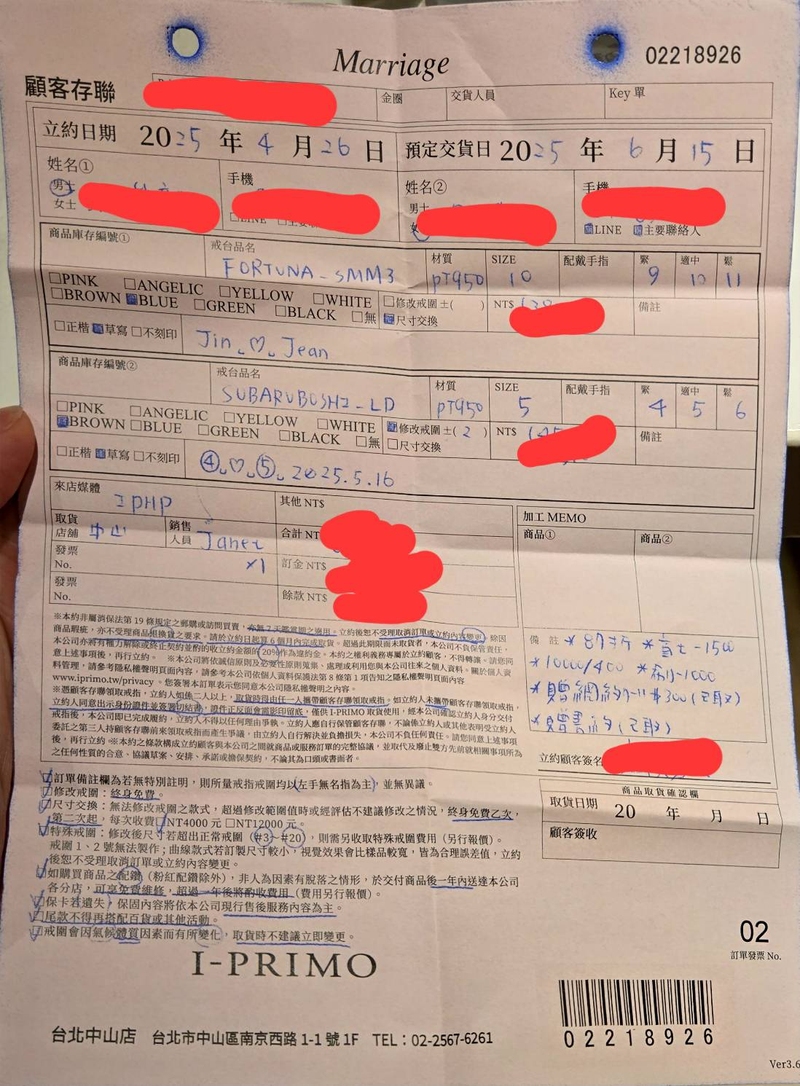 Marriage
02218926
顧客存聯
金圍
交貨人員
Key 單
立約日期 2025 年 4 月 26 日
預定交貨日 2025 年 6 月 15 日
姓名①
男士
女士
手機
□LINE
姓名②
男士
手機
LINE 主要聯絡人
商品庫存編號①
戒台品名
FORTUNA-SMM3
材質
PT950
SIZE
10
配戴手指
緊 適中 鬆
9 10 11
□PINK □ANGELIC □YELLOW □WHITE
□BROWN BLUE □GREEN □BLACK □無
□修改戒圍±( )
尺寸交換
NT$
備註
□正楷 草寫 □不刻印
Jin ♡ Jean
商品庫存編號②
戒台品名
SUBARUBOSHI-LD
材質
PT950
SIZE
5
配戴手指
緊 適中 鬆
4 5 6
□PINK □ANGELIC □YELLOW □WHITE
BROWN □BLUE □GREEN □BLACK □無
修改戒圍±( 2 )
□尺寸交換
NT$
備註
□正楷 草寫 □不刻印
④ ♡ ⑤ 2025.5.16
來店媒體
IPHP
其他 NT$
取貨店舖 中山
銷售人員 Janet
x1
合計 NT
訂金 NT$
餘款 NT$
發票 No.
發票 No.
加工 MEMO
商品①
商品②
※本約非屬消保法第 19 條規定之郵購或訪問買賣,亦無 7 天鑑賞期之適用。立約後恕不受理取消訂單或立約內容變更,除因
商品瑕疵,亦不受理商品退換貨之要求。請於立約日起算 6 個月內完成取貨。超過此期限而未取貨者,本公司不負保管責任。
本公司亦將有權力解除或終止契約並酌收立約金額的 20% 作為違約金。本約之權利義務專屬於立約顧客,不得轉讓。請您同
意上述事項後,再行立約。 ※本公司將依誠信原則及必要性原則蒐集、處理或利用您與本公司往來之個人資料。關於個人資
料管理,請參考隱私權聲明內容,請參考本公司依個人資料保護法第 8 條第 1 項告知之隱私權聲明頁面內容
www.iprimo.tw/privacy。您簽署本訂單表示您同意本公司隱私權聲明之內容。
※憑顧客存聯領取戒指,立約人如係二人以上,取貨時得由任一人攜帶顧客存聯領取戒指,如立約人未攜帶顧客存聯領取戒指,
立約人同意出示身份證件並簽署切結書,證件正反面會電影印留底,僅供 I-PRIMO 取貨使用,經本公司確認立約人身分交付
戒指後,本公司即已完成履約,立約人不得以任何理由爭執。立約人應自行保管顧客存聯,不論係立約人或其他
委託之第三人持顧客存聯前來領取戒指而產生爭議,由立約人自行解決並負擔損失,本公司不負任何責任。請您同意上述事項
後,再行立約 ※本約之條款構成立約顧客與本公司之間就商品或服務訂單的完整協議,並取代及廢止雙方先前就相關事項所為
之任何性質的合意、協議草案、安排、承諾或擔保契約,不論其為口頭或書面者。
備 註 *87折 *富士-1500
*1000/400 *刷-1000
*贈書約(已取)
立約顧客簽名
□訂單備註欄為若無特別註明,則所量戒指戒圍均以(左手無名指為主),並無異議。
□修改戒圍:終身免費。
□尺寸交換:無法修改戒圍之款式,超過修改範圍值時或經評估不建議修改之情況,終身免費乙次,
第二次起,每次收費□NT4000 元 □NT12000 元。
□特殊戒圍:修改後尺寸若超出正常戒圍 (#3~#20),則需另收取特殊戒圍費用 (另行報價)。
戒圍 1、2 號無法製作;曲線款式若訂製尺寸較小,視覺效果會比樣品較寬,皆為合理誤差值,立約
後恕不受理取消訂單或立約內容變更。
□如購買商品之配鑽 (粉紅配鑽除外),非人為因素有脫落之情形,於交付商品後一年內送達本公司
各分店,可享免費維修,超過一年後將酌收費用 (費用另行報價)。
□保卡若遺失,保固內容將依本公司現行售後服務內容為主。
□尾款不得再搭配百貨或其他活動。
□戒圍會因氣候體質因素而有所變化,取貨時不建議立即變更。
商品取貨確認欄
取貨日期 20 年 月 日
顧客簽收
I-PRIMO
02
訂單發票 No.
台北中山店 台北市中山區南京西路 1-1 號 1F TEL:02-2567-6261
02218926
Ver3.6